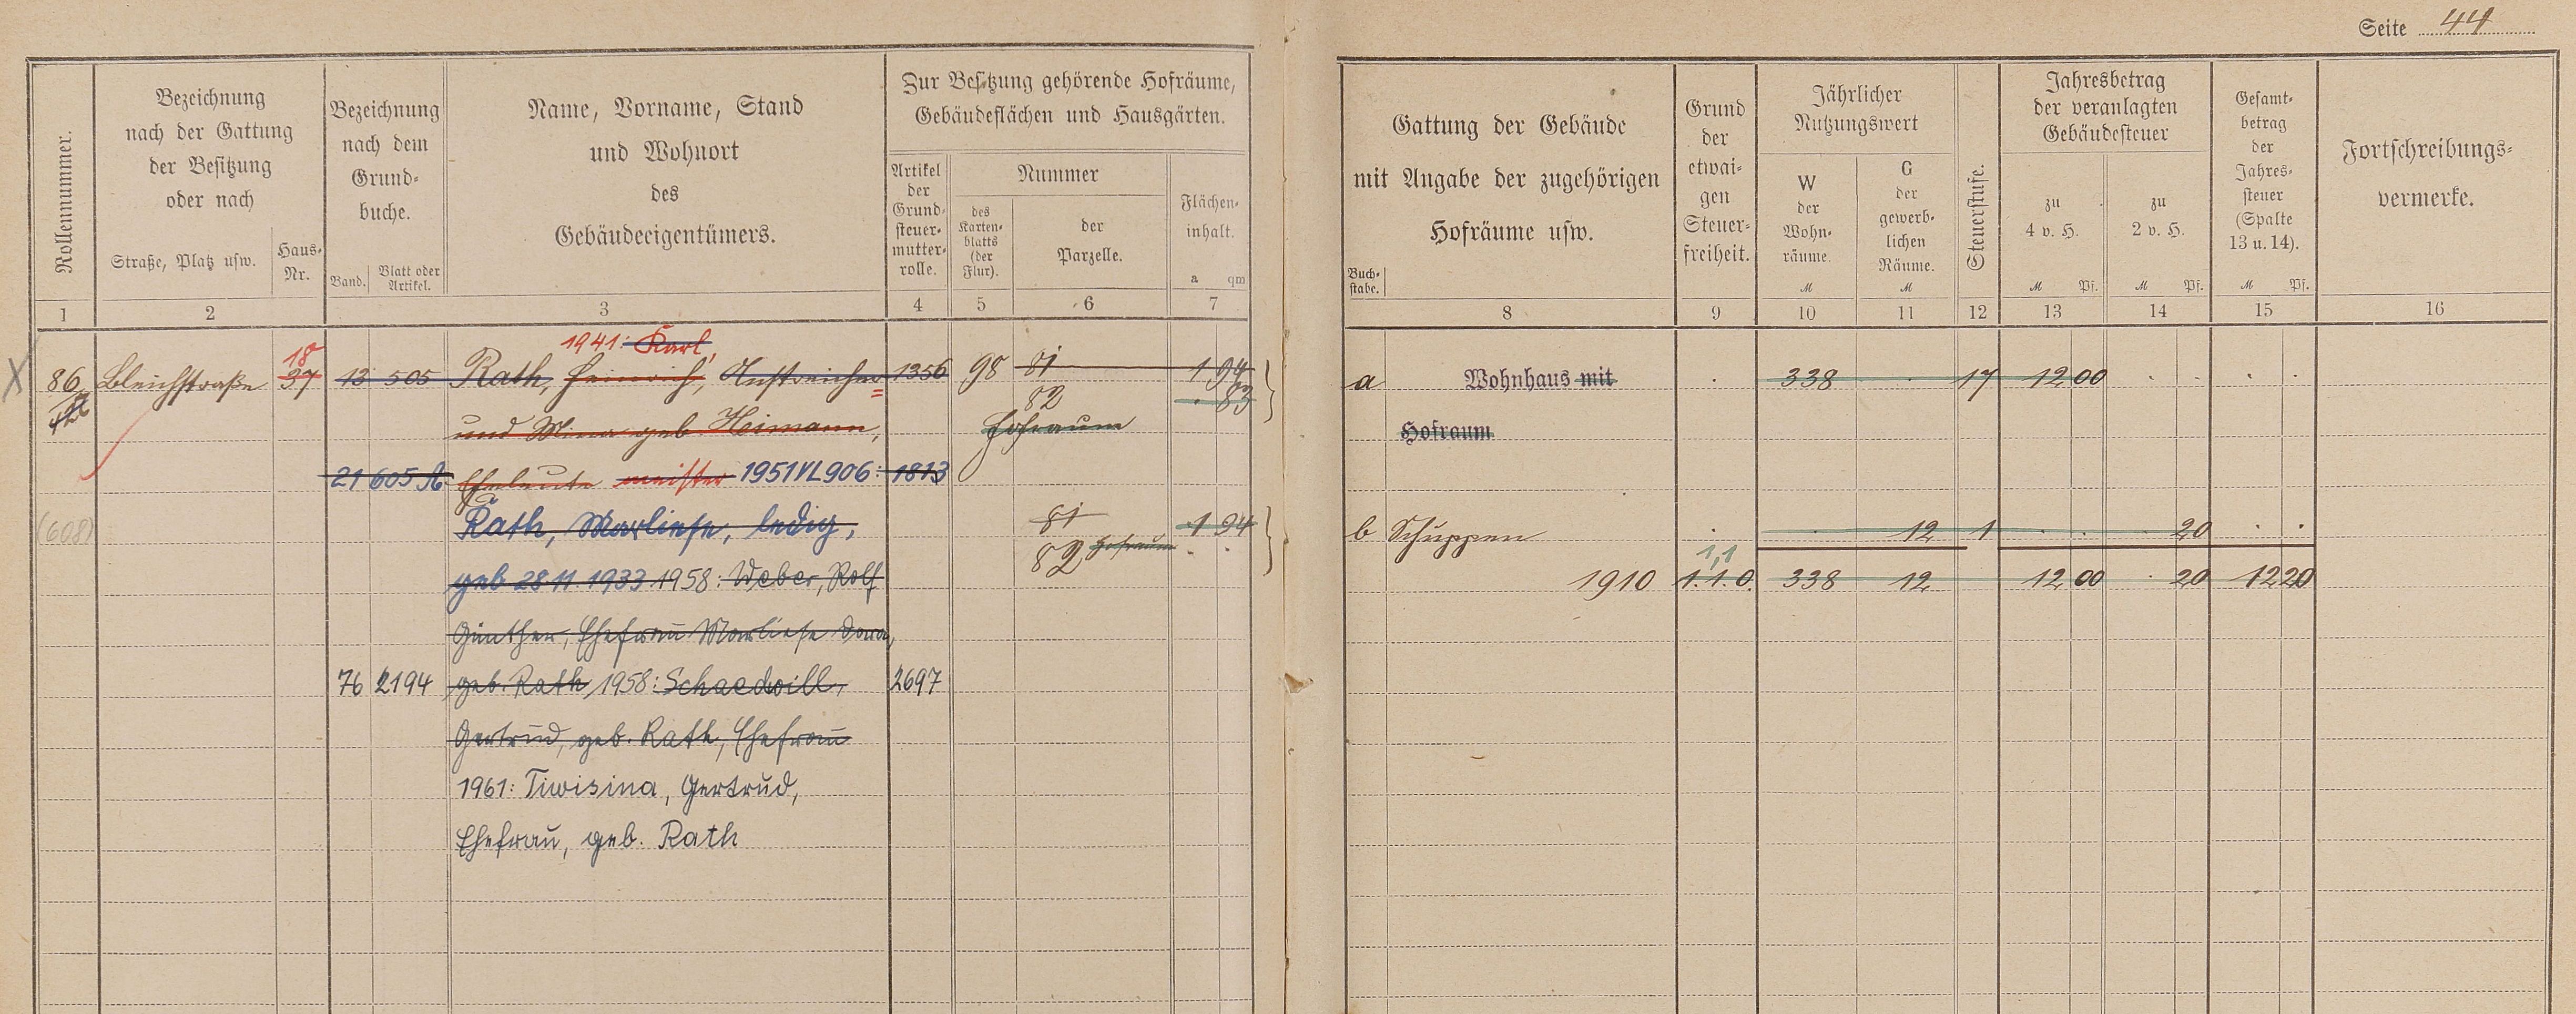 Seite 44
Rollennummer.
Bezeichnung
nach der Gattung
der Besitzung
oder nach
Straße, Platz usw.
Haus-
Nr.
Bezeichnung
nach dem
Grund-
buche.
Band.
Blatt oder
Artikel.
Name, Vorname, Stand
und Wohnort
des
Gebäudeeigentümers.
Zur Besitzung gehörende Hofräume,
Gebäudeflächen und Hausgärten.
Artikel
der
Grund-
steuer-
mutter-
rolle.
Nummer
des
Karten-
blatts
(der
Flur).
der
Parzelle.
Flächen-
inhalt.
a qm
1 2 3 4 5 6 7
Gattung der Gebäude
mit Angabe der zugehörigen
Hofräume usw.
Buch-
stabe.
Grund
der
etwai-
gen
Steuer-
freiheit.
Jährlicher
Nutzungswert
W
der
Wohn-
räume.
M
G
der
gewerb-
lichen
Räume.
M
Steuerstufe.
Jahresbetrag
der veranlagten
Gebäudesteuer
zu
4 v. H.
M Pf.
zu
2 v. H.
M Pf.
Gesamt-
betrag
der
Jahres-
steuer
(Spalte
13 u. 14).
M Pf.
Fortschreibungs-
vermerke.
8 9 10 11 12 13 14 15 16
1941: Karl,
18
X 86 Bleichstraße 37 13 505 Rath, Heinrich, Anstreicher 1356 98 81 1 94
82 83
und Mina geb. Heimann, Hofraum
21 605 A Eheleute meister 1951 VL 906: 1813
(608) Rath, Marliese, ledig, 81 1 94
82 Hofraum
geb 28.11.1933 1958: Weber, Rolf
Günther, Ehefrau Marliese Dora,
76 2194 geb. Rath, 1958: Schaedwill, 2697
Gertrud, geb. Rath, Ehefrau
1961: Tiwisina, Gertrud,
Ehefrau, geb. Rath
a Wohnhaus mit 338 17 12 00
Hofraum
b Schuppen 12 1 20
1,1
1910 1.1.0. 338 12 12 00 20 12 20